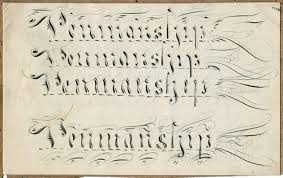 Penmanship
Penmanship
Penmanship
Penmanship